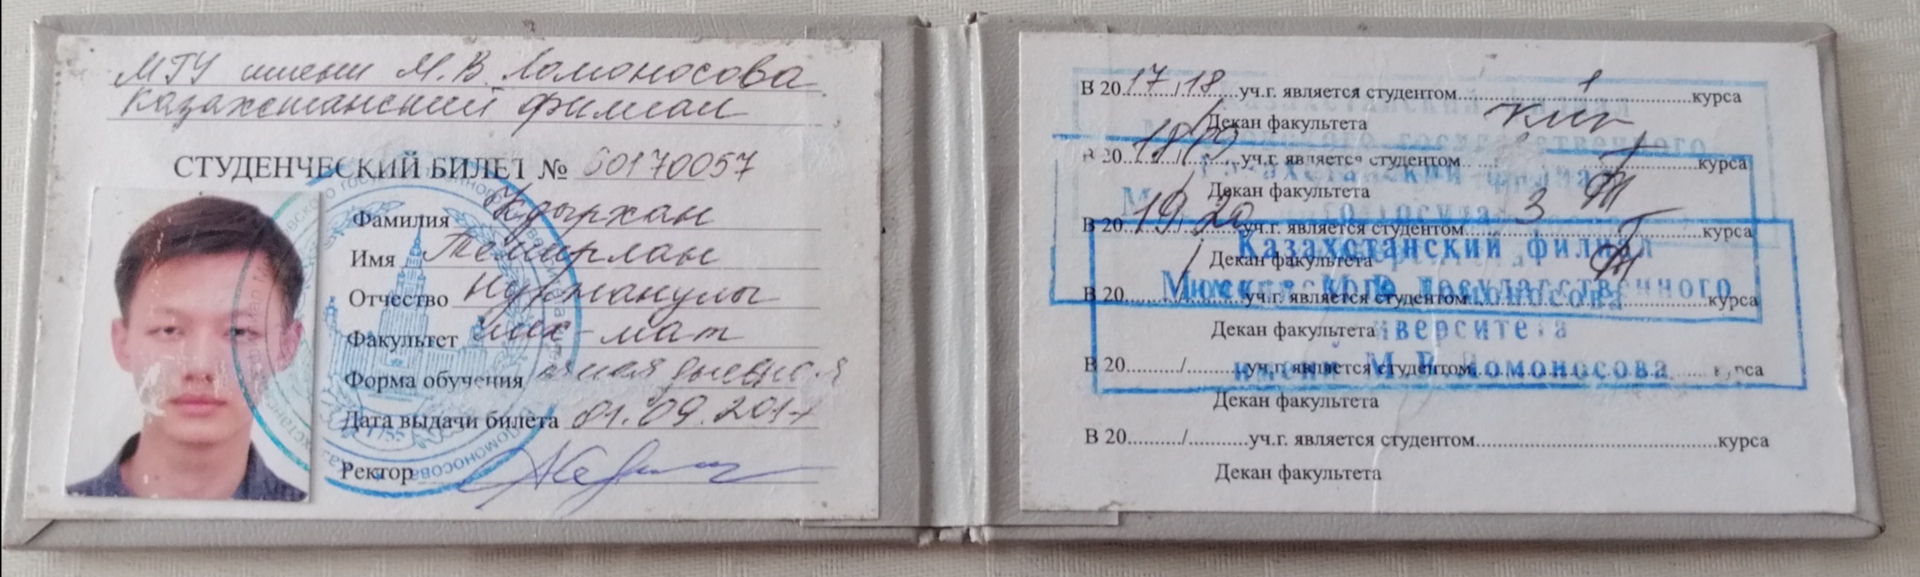 МГУ имени М.В. Ломоносова
Казахстанский филиал
СТУДЕНЧЕСКИЙ БИЛЕТ № 00170057
Фамилия Қдырхан
Имя Темирлан
Отчество Нурманулы
Факультет мех-мат
Форма обучения дневная
Дата выдачи билета 01.09.2017
Ректор
1755
В 20 17/18 уч.г. является студентом 1 курса
Декан факультета
В 20 18/19 уч.г. является студентом курса
Декан факультета
В 20 19/20 уч.г. является студентом 3 курса
Декан факультета
Казахстанский филиал
В 20....../......уч.г. является студентом курса
Московского государственного
Декан факультета
университета
В 20....../......уч.г. является студентом курса
имени М.В. Ломоносова
Декан факультета
В 20....../......уч.г. является студентом......курса
Декан факультета